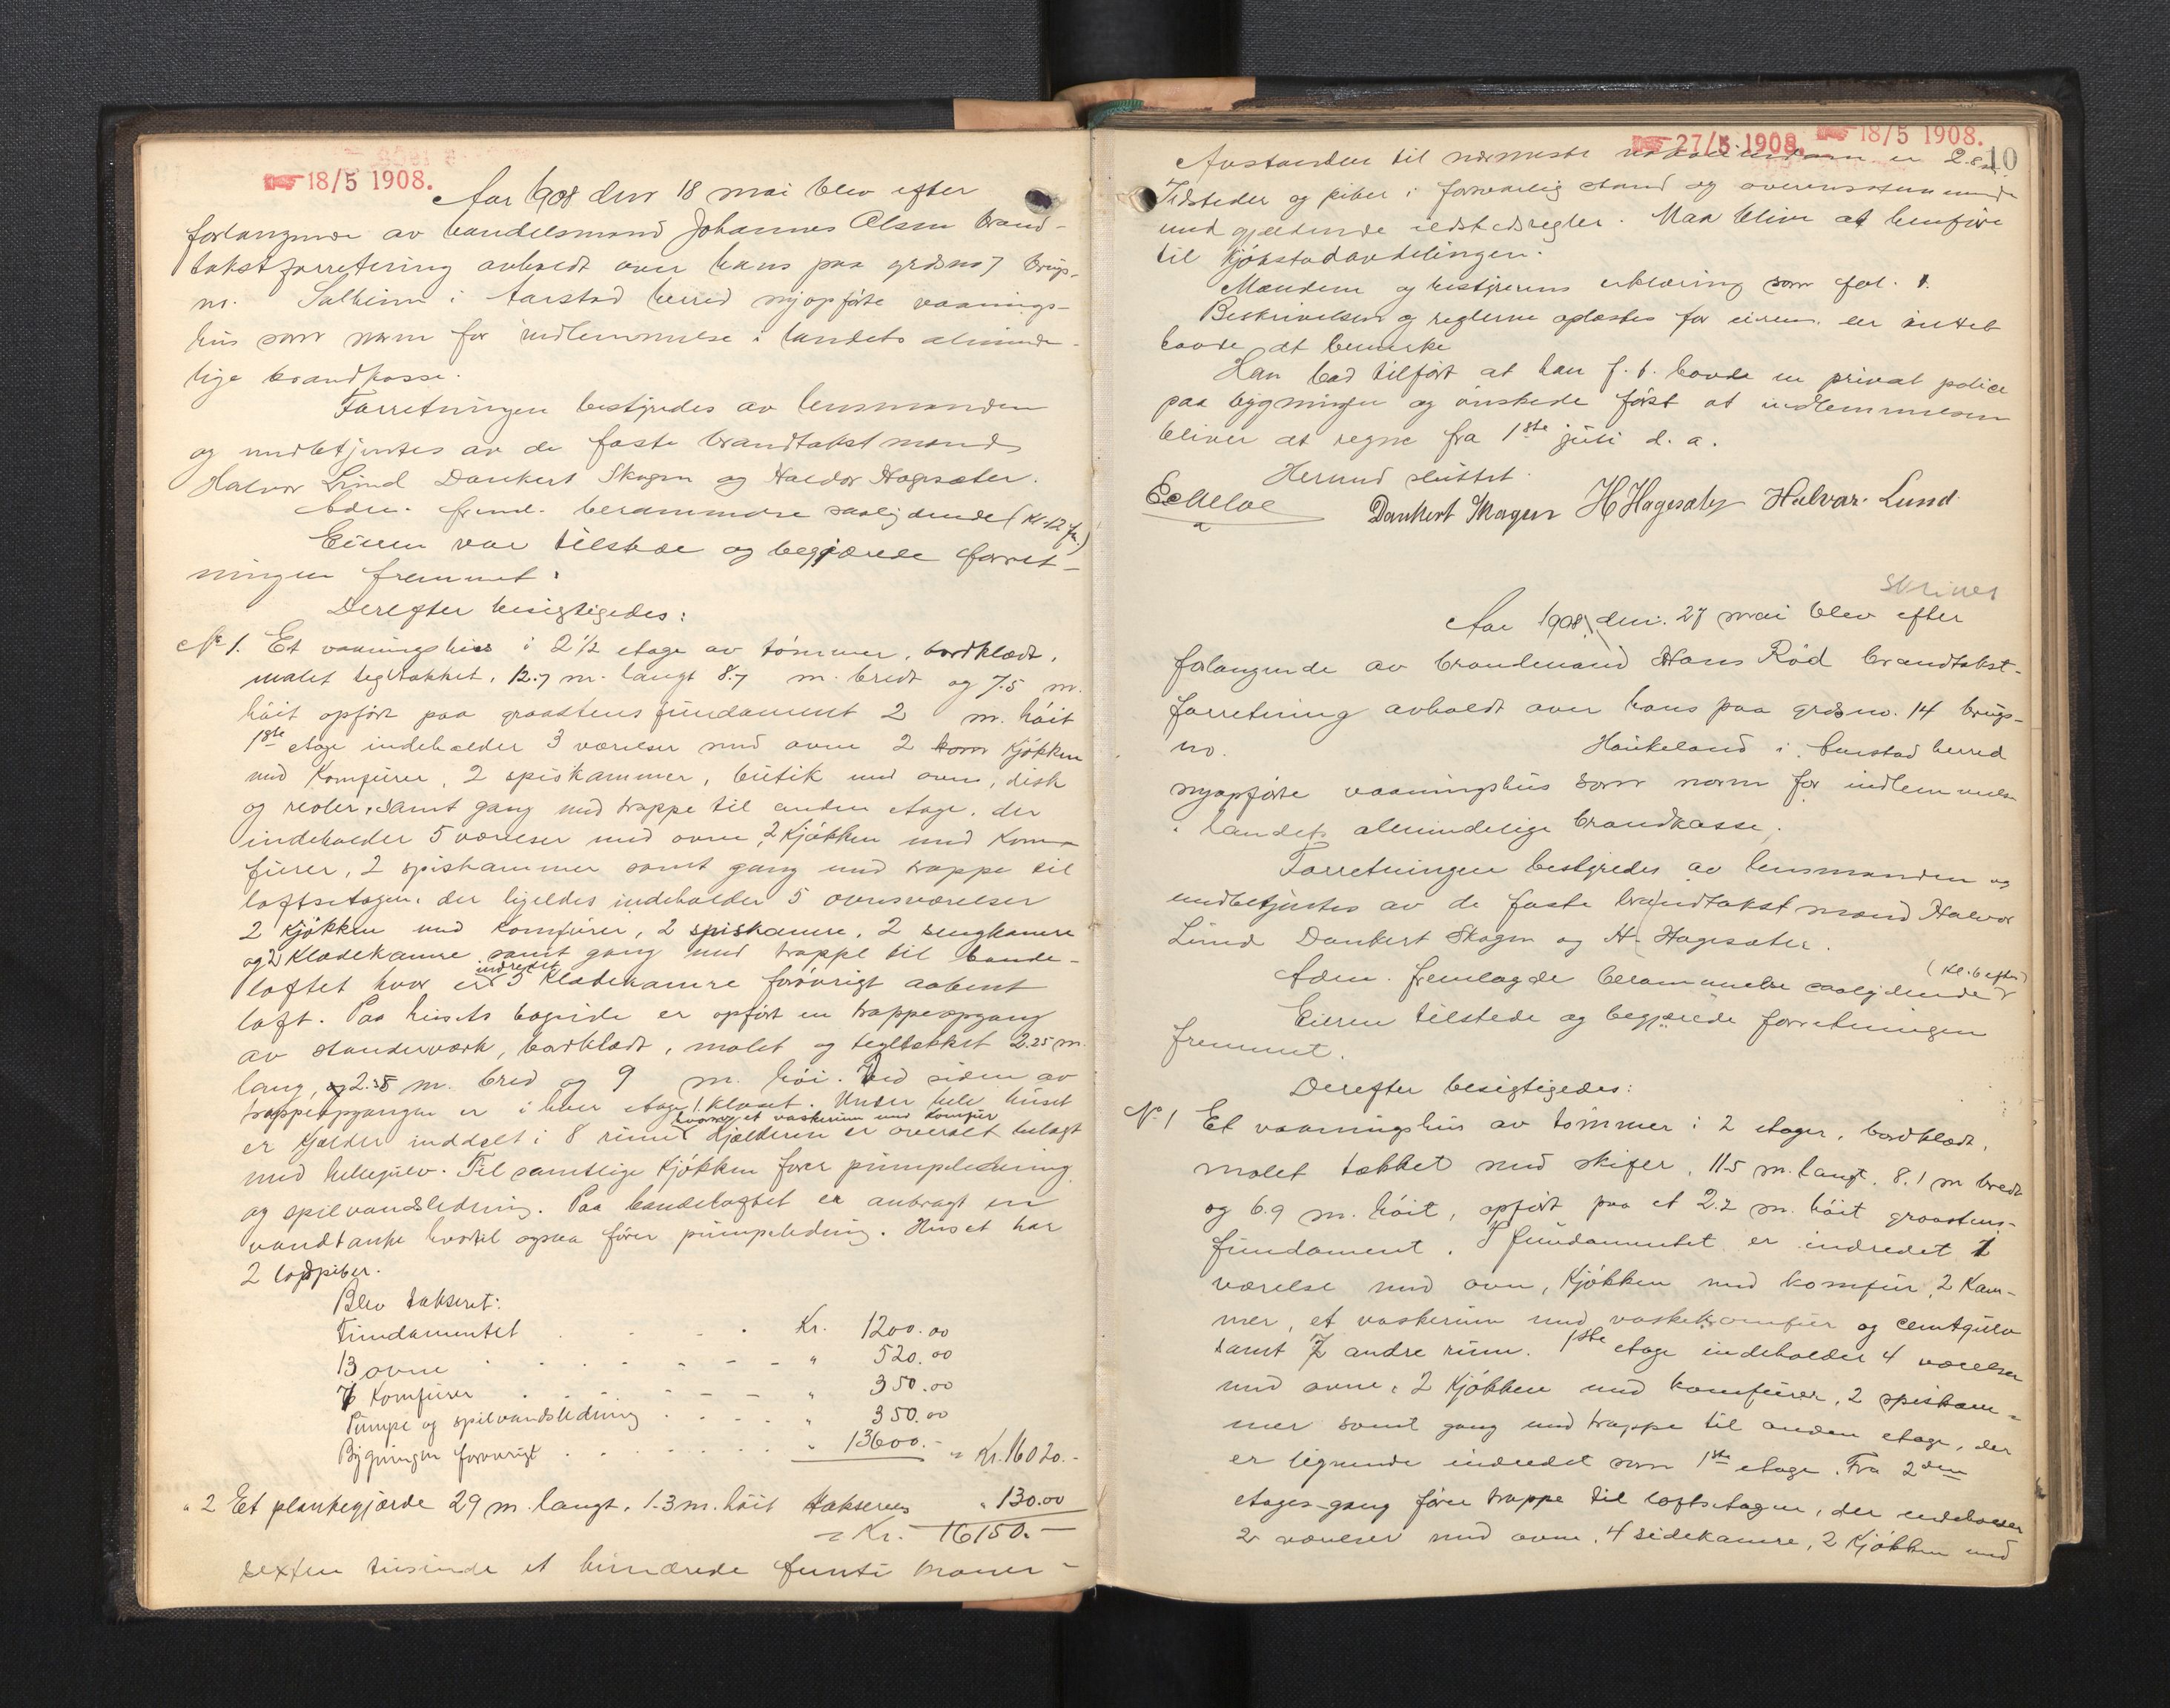 18/5 1908.
Aar 1908 den 18 mai blev efter
forlangende av handelsmand Johannes Olsen brand-
takstforretning avholdt over hans paa grdsno 7 brugs-
nr. Solheim i Aarstad herred nyopførte vaanings-
hus som norm for indlemmelse i landets alminde-
lige brandkasse.
Forretningen bestyredes av lensmanden
og medbetjentes av de faste brandtakstmænd
Halvor Lund Dankert Skogen og Haldor Hagesæter.
Adm. freml. berammelse saalydende (Kl. 12 fm.)
Eieren var tilstede og begjærede forret-
ningen fremmet.
Derefter besigtigedes:
No 1. Et vaaningshus i 2 1/2 etage av tømmer, bordklædt,
malet tegltækket, 12.7 m. langt 8.7 m. bredt og 7.5 m.
høit opført paa graastens fundament 2 m. høit
1ste etage indeholder 3 værelser med ovne 2 Kjøkken
med Komfurer, 2 spiskammer, butik med ovn, disk
og reoler, samt gang med trappe til anden etage, der
indeholder 5 værelser med ovne, 2 Kjøkken med Kom-
furer, 2 spiskammer samt gang med trappe til
loftsetagen, der ligeledes indeholder 5 ovnsværelser
2 Kjøkken med Komfurer, 2 spiskamre, 2 sengkamre
og 2 Klædekamre samt gang med trappe til bande-
loftet hvor er indredet 5 Klædekamre forøvrigt aabent
loft. Paa husets bagside er opført en trappeopgang
av standerværk, bordklædt, malet og tegltækket 2.25 m.
lang, 2.35 m. bred og 9 m. høi. Ved siden av
trappeopgangen er i hver etage 1 kloset. Under hele huset
er Kjælder inddelt i 8 rum hvorav et vaskerum med Komfur Kjælderen er overalt belagt
med hellegulv. Til samtlige Kjøkken fører pumpeledning
og spilvandsledning. Paa bandeloftet er anbragt en
vandtank hvortil ogsaa fører pumpeledning. Huset har
2 løbpiber.
Blev takseret:
Fundamentet Kr. 1200.00
13 ovne " 520.00
7 Komfurer " 350.00
Pumpe og spilvandsledning " 350.00
Bygningen forøvrigt " 13600.- = Kr. 16020.-
" 2 Et plankegjærde 29 m. langt, 1.3 m. høit takseres " 130.00
= Kr. 16150.-
sexten tusinde et hundrede femti kroner-
27/5 1908. 18/5 1908.
10
Avstanden til nærmeste er 2.8 m.
Ildsteder og piber i forsvarlig stand og overensstemmende
med gjældende ildstedsregler. Maa blive at henføre
til Kjøbstadavdelingen.
Mændene og bestyrerens erklæring som fol. 1.
Beskrivelsen og reglerne oplæstes for eieren der intet
havde at bemerke
Han bad tilført at han f. t. havde en privat police
paa bygningen og ønskede først at indlemmelsen
bliver at regne fra 1ste juli d. a.
Hermed sluttet.
Dankert Skogen H Hagesæter Halvor Lund
Skrivet
Aar 1908, den 27 mai blev efter
forlangende av brandmand Hans Rød brandtakst-
forretning avholdt over hans paa grdsno. 14 brugs-
no. Haukeland i Aarstad herred
nyopførte vaaningshus som norm for indlemmelse
i landets almindelige brandkasse.
Forretningen bestyredes av lensmanden og
medbetjentes av de faste brandtakstmænd Halvor
Lund Dankert Skogen og H. Hagesæter.
Adm. fremlagde berammelse saalydende (Kl. 6 eftm)
Eieren tilstede og begjærede forretningen
fremmet.
Derefter besigtigedes:
No 1 Et vaaningshus av tømmer i 2 etager, bordklædt,
malet tækket med skifer, 11.5 m. langt, 8.1 m bredt
og 6.9 m. høit, opført paa et 2.2 m. høit graastens-
fundament. I fundamentet er indredet 1
værelse med ovn, Kjøkken med komfur, 2 Kam-
mer, et vaskerum med vaskekomfur og cemtgulv
samt 7 andre rum. 1ste etage indeholder 4 værelser
med ovne, 2 Kjøkken med komfurer, 2 spiskam-
mer samt gang med trappe til anden etage, der
er lignende indredet som 1ste etage. Fra 2den
etages gang fører trappe til loftsetagen, der indeholder
2 værelser med ovne, 4 sidekamre, 2 Kjøkken med